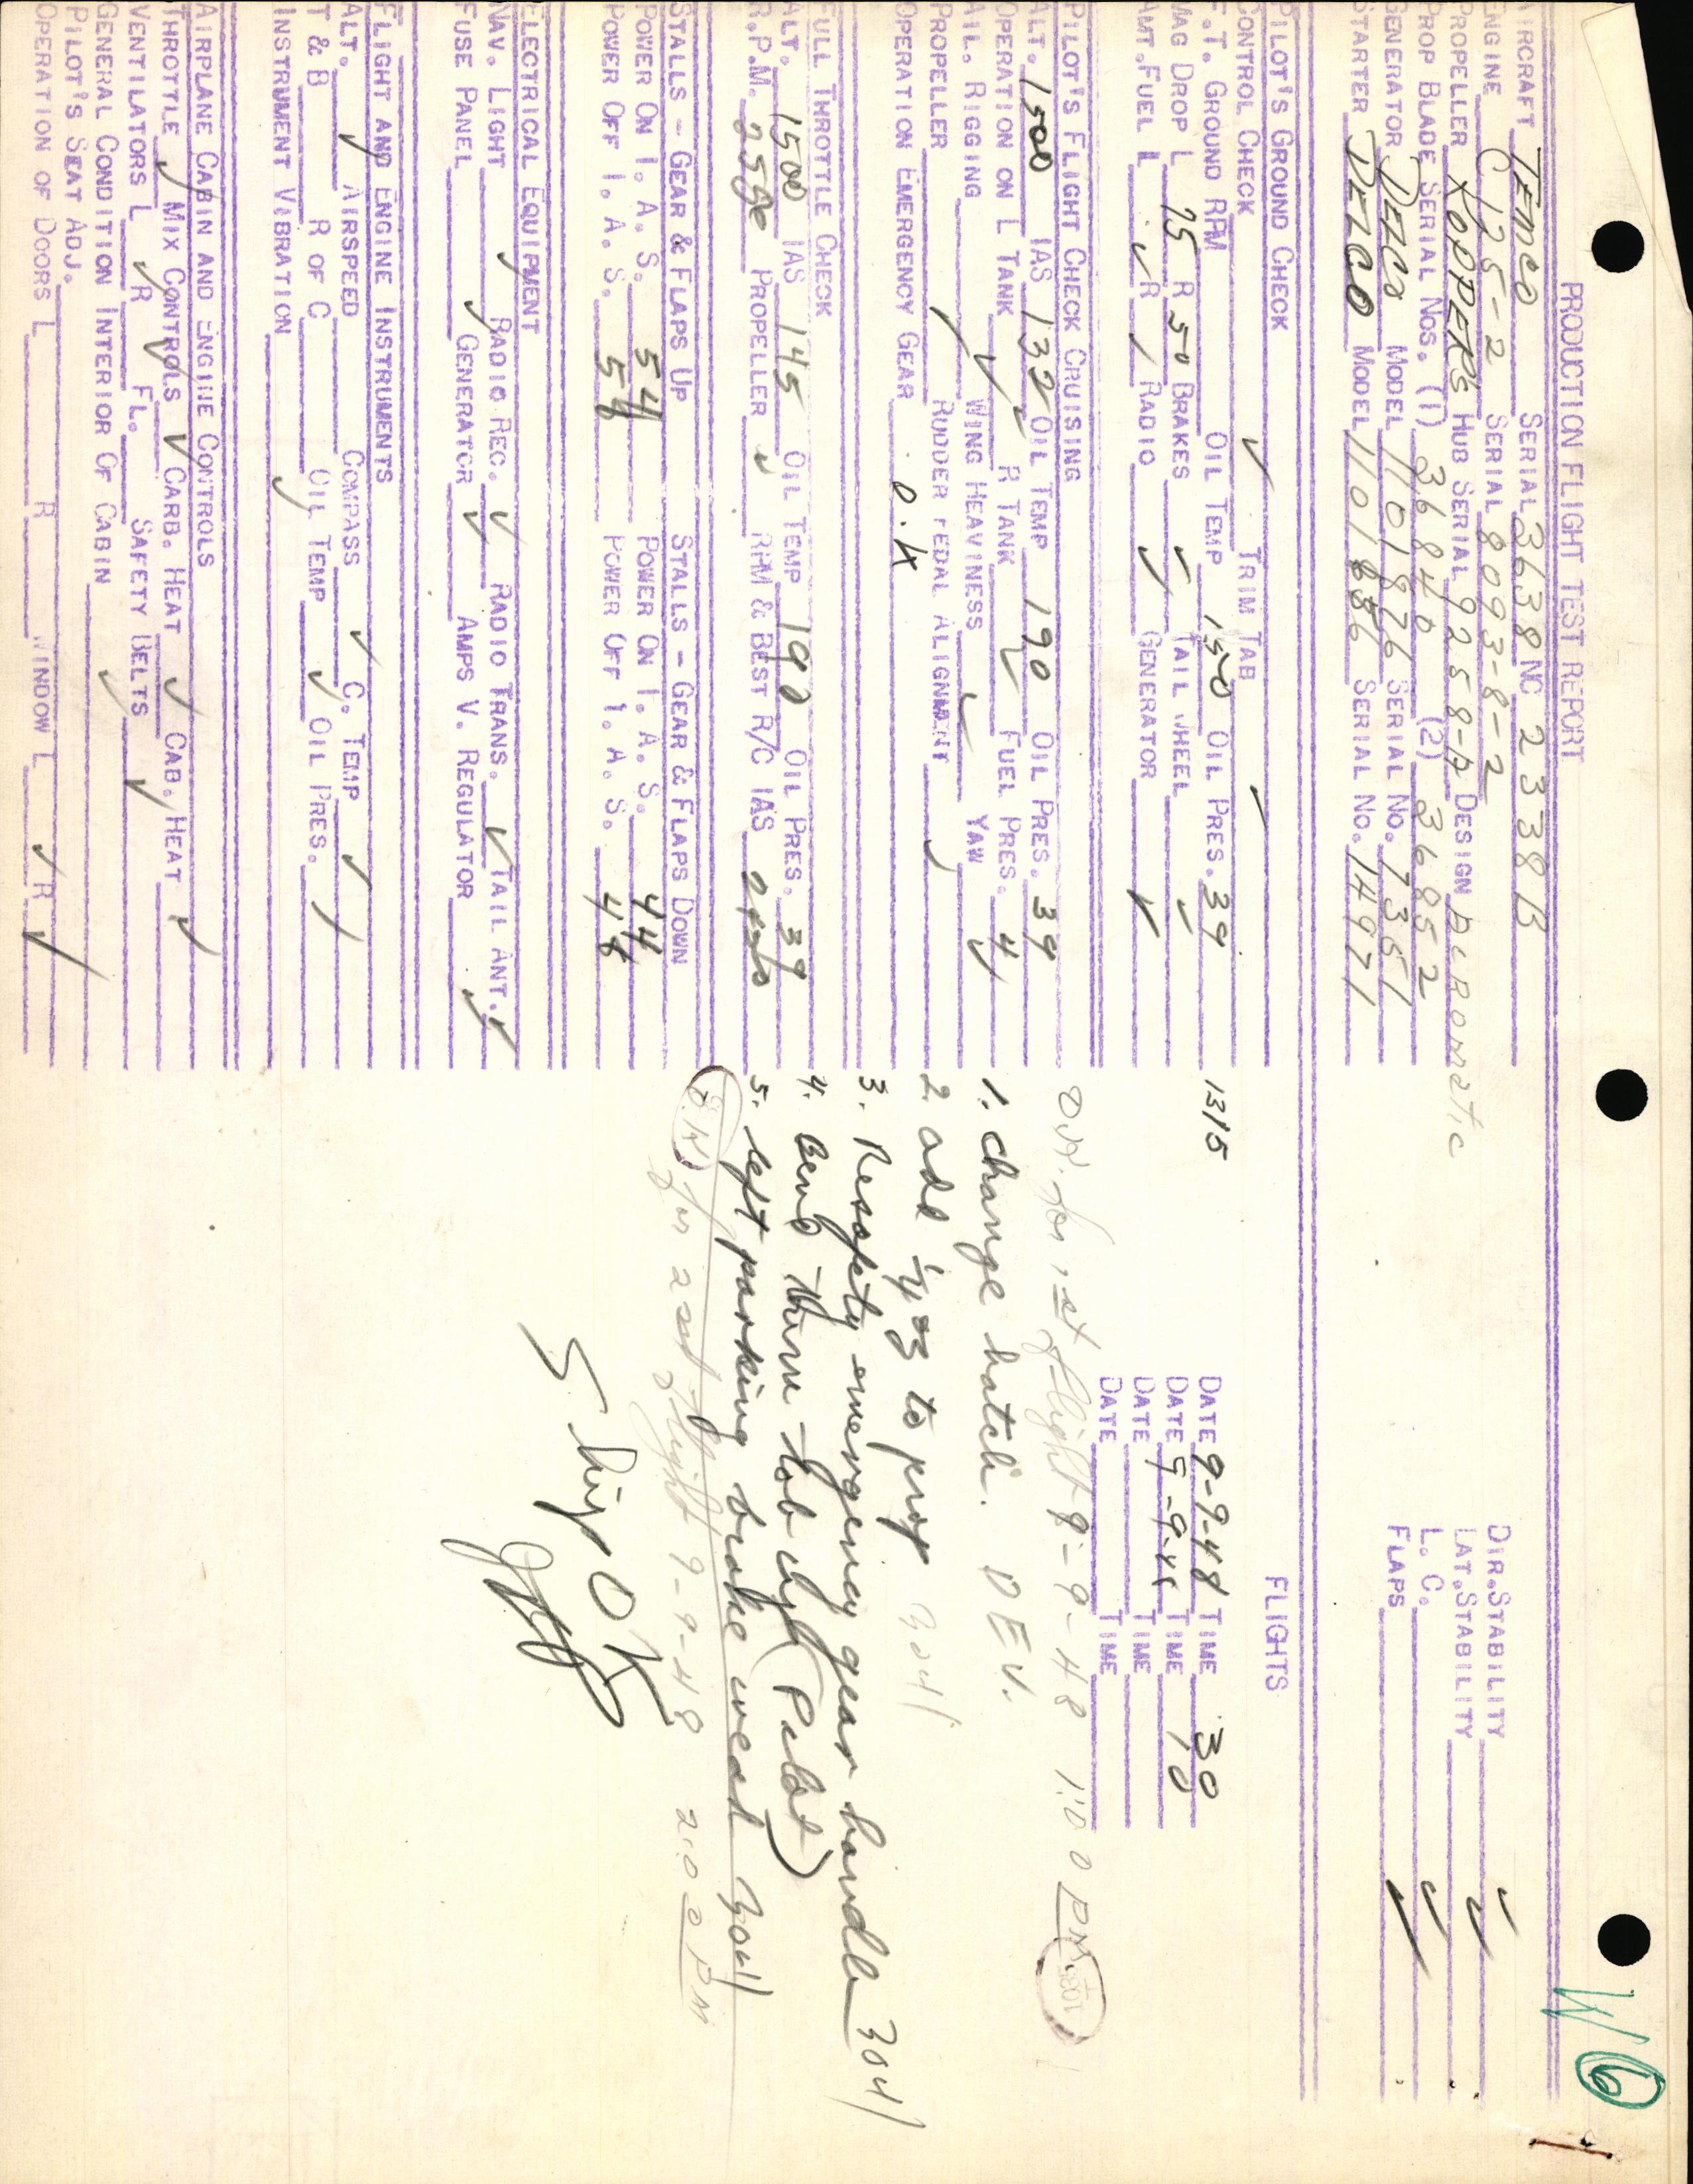 PRODUCTION FLIGHT TEST REPORT
W 6
AIRCRAFT TEMCO SERIAL 3638 NC 2338B
ENGINE C 125-2 SERIAL 8093-8-2
PROPELLER KOPPERS HUB SERIAL 9258-A DESIGN Aeromatic
PROP BLADE SERIAL NOS. (1) 36840 (2) 36852
GENERATOR DELCO MODEL 1101876 SERIAL NO. 7351
STARTER DELCO MODEL SERIAL NO. 14971
DIR. STABILITY ✓
LAT. STABILITY ✓
L. C. ✓
FLAPS ✓
PILOT'S GROUND CHECK
CONTROL CHECK ✓ TRIM TAB ✓
F.T. GROUND RPM OIL TEMP 150 OIL PRES. 39 1315
MAG DROP L 75 R 50 BRAKES ✓ TAIL WHEEL ✓
AMT. FUEL L ✓ R ✓ RADIO ✓ GENERATOR ✓
FLIGHTS
DATE 9-9-48 TIME 30
DATE 9-9-48 TIME 10
DATE TIME
DATE TIME
PILOT'S FLIGHT CHECK CRUISING
ALT. 1500 IAS 132 OIL TEMP 190 OIL PRES. 39
OPERATION ON L TANK ✓ R TANK ✓ FUEL PRES. 4
AIL. RIGGING ✓ WING HEAVINESS ✓ YAW ✓
PROPELLER ✓ RUDDER PEDAL ALIGNMENT ✓
OPERATION EMERGENCY GEAR O.K
FULL THROTTLE CHECK
ALT. 1500 IAS 145 OIL TEMP 190 OIL PRES. 39
R.P.M. PROPELLER ✓ RPM & BEST R/C IAS
STALLS - GEAR & FLAPS UP STALLS - GEAR & FLAPS DOWN
POWER ON I. A. S. 54 POWER ON I. A. S. 44
POWER OFF I. A. S. 58 POWER OFF I. A. S. 48
ELECTRICAL EQUIPMENT
NAV. LIGHT ✓ RADIO REC. ✓ RADIO TRANS. ✓ TAIL ANT. ✓
FUSE PANEL ✓ GENERATOR ✓ AMPS V. REGULATOR ✓
FLIGHT AND ENGINE INSTRUMENTS
ALT. ✓ AIRSPEED COMPASS ✓ C. TEMP ✓
T & B R OF C OIL TEMP ✓ OIL PRES. ✓
INSTRUMENT VIBRATION ✓
AIRPLANE CABIN AND ENGINE CONTROLS
THROTTLE ✓ MIX CONTROLS ✓ CARB. HEAT ✓ CAB. HEAT ✓
VENTILATORS L ✓ R ✓ FL. SAFETY BELTS ✓
GENERAL CONDITION INTERIOR OF CABIN ✓
PILOT'S SEAT ADJ.
OPERATION OF DOORS L R WINDOW L ✓ R ✓
O.K. for 1st flight 9-9-48 1:00 PM
1. Change hatch. DEV.
2. add 1/4 oz to prop 3041
3. Resafety emergency gear handle 3041
4. Bend turn tab (Pilot)
5. left parking brake weak 3041
O.K. for 2nd flight 9-9-48 2:00 PM
Ship OK